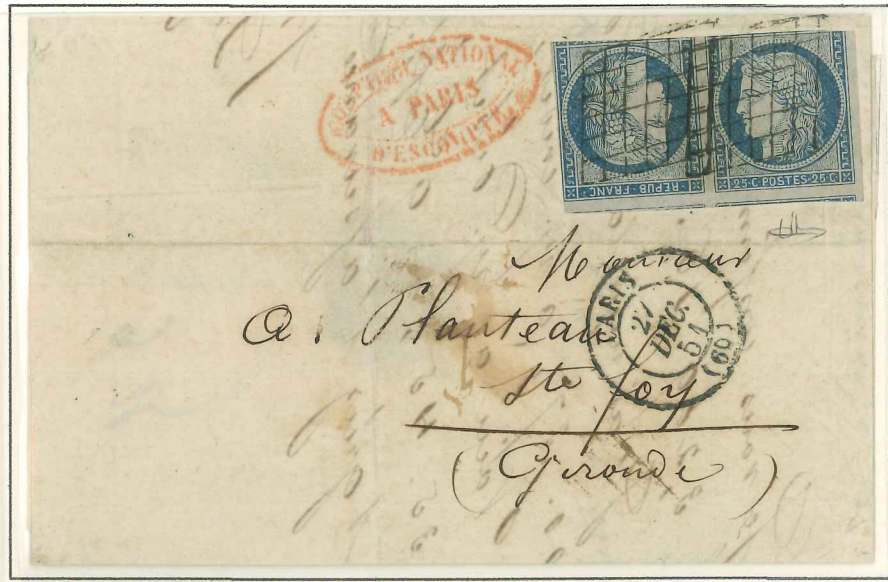 COMPTOIR NATIONAL
A PARIS
D'ESCOMPTE
REPUB·FRANC·
25·C·POSTES·25·C
Monsieur
A. Planteau
Ste Foy
(Gironde)
PARIS
27
DEC.
51
(60)